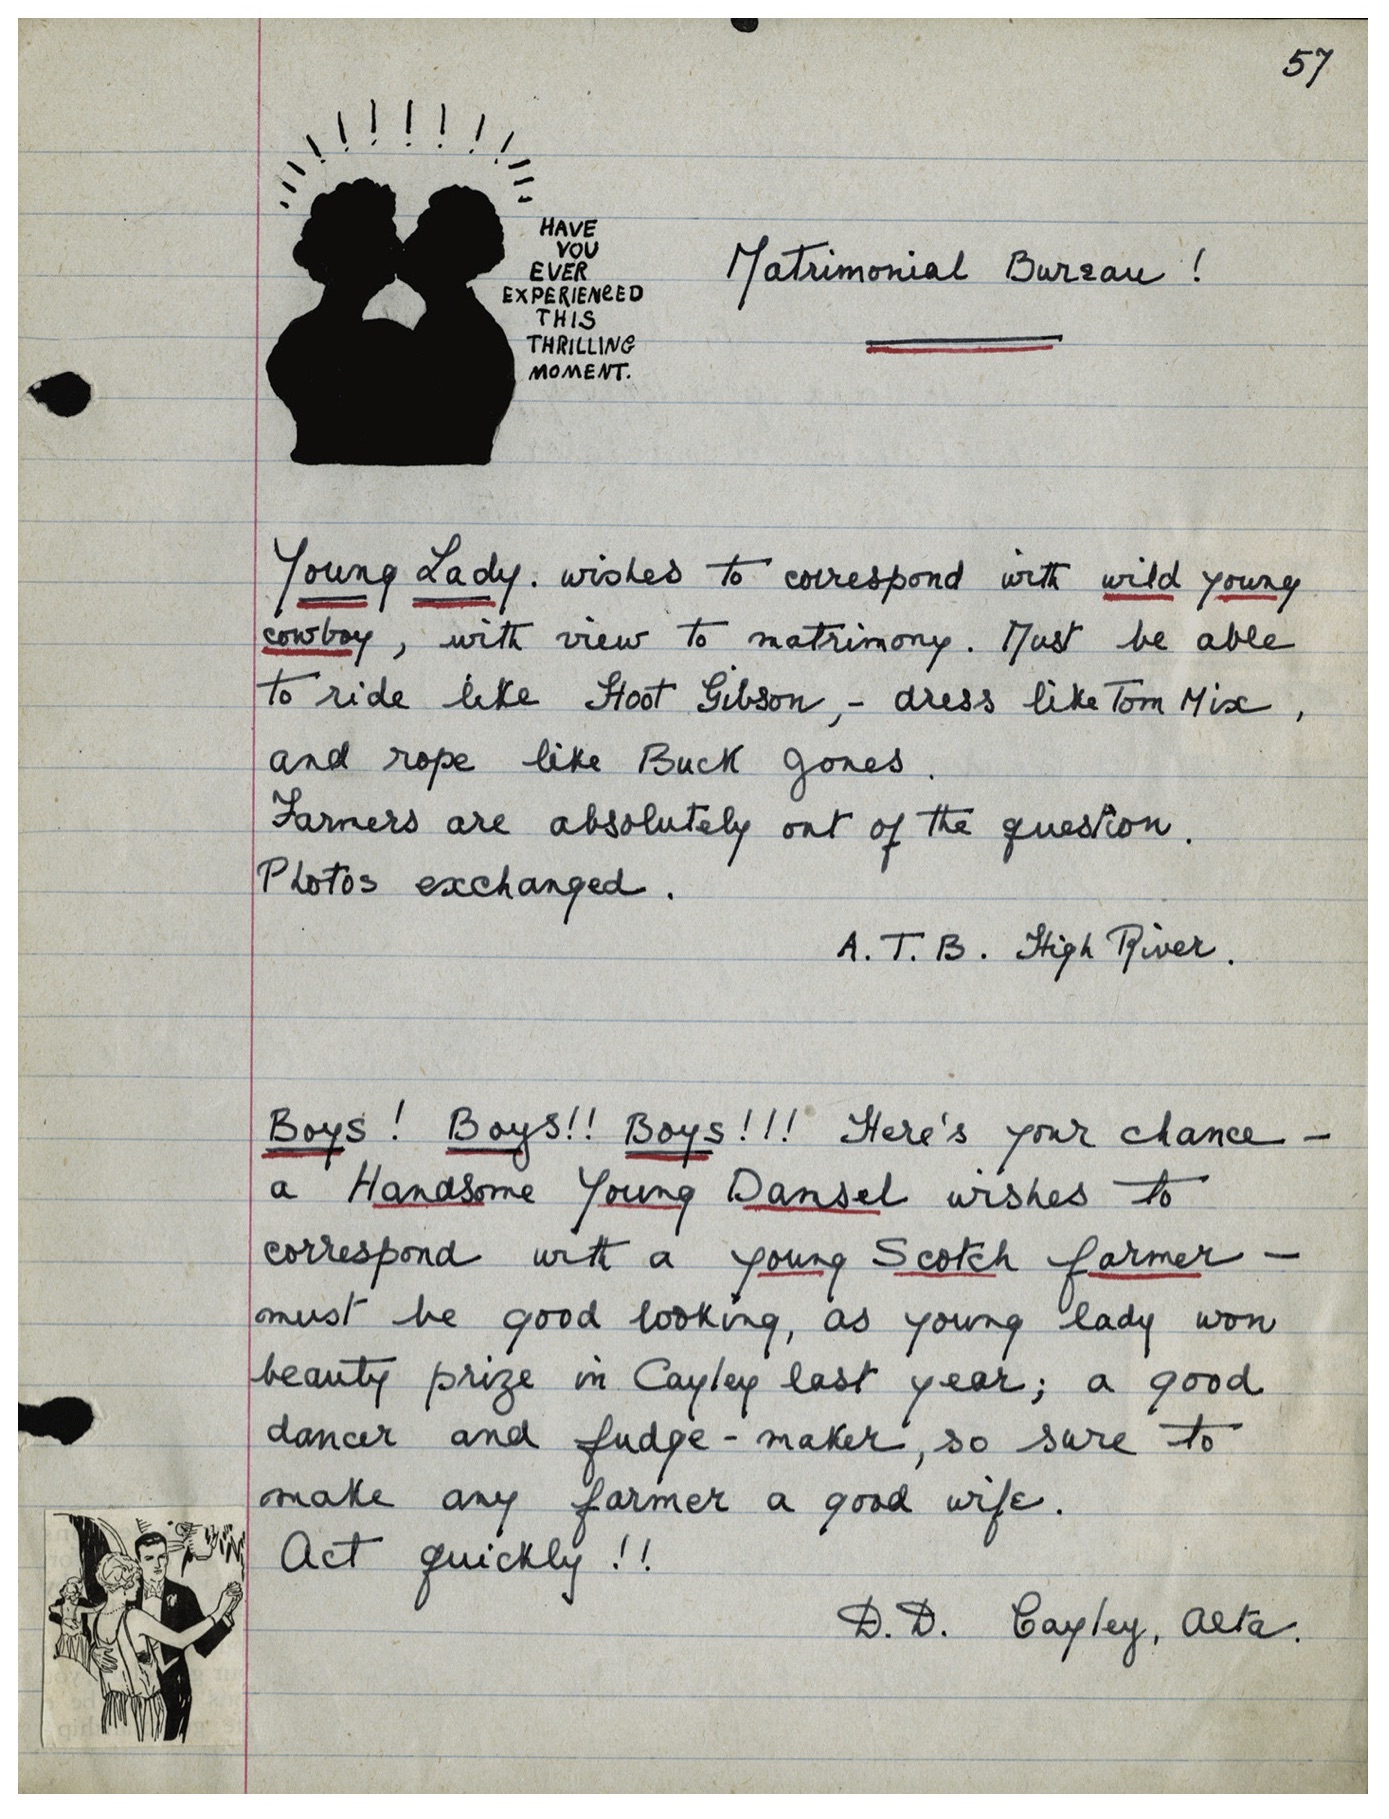 57
HAVE
YOU
EVER
EXPERIENCED
THIS
THRILLING
MOMENT.
Matrimonial Bureau !
Young Lady. wishes to correspond with wild young
cowboy, with view to matrimony. Must be able
to ride like Hoot Gibson, - dress like Tom Mix,
and rope like Buck Jones.
Farmers are absolutely out of the question.
Photos exchanged.
A.T.B. High River.
Boys! Boys!! Boys!!! Here's your chance -
a Handsome Young Damsel wishes to
correspond with a young Scotch farmer -
must be good looking, as young lady won
beauty prize in Cayley last year; a good
dancer and fudge-maker, so sure to
make any farmer a good wife.
Act quickly!!
D.D. Cayley, Alta.